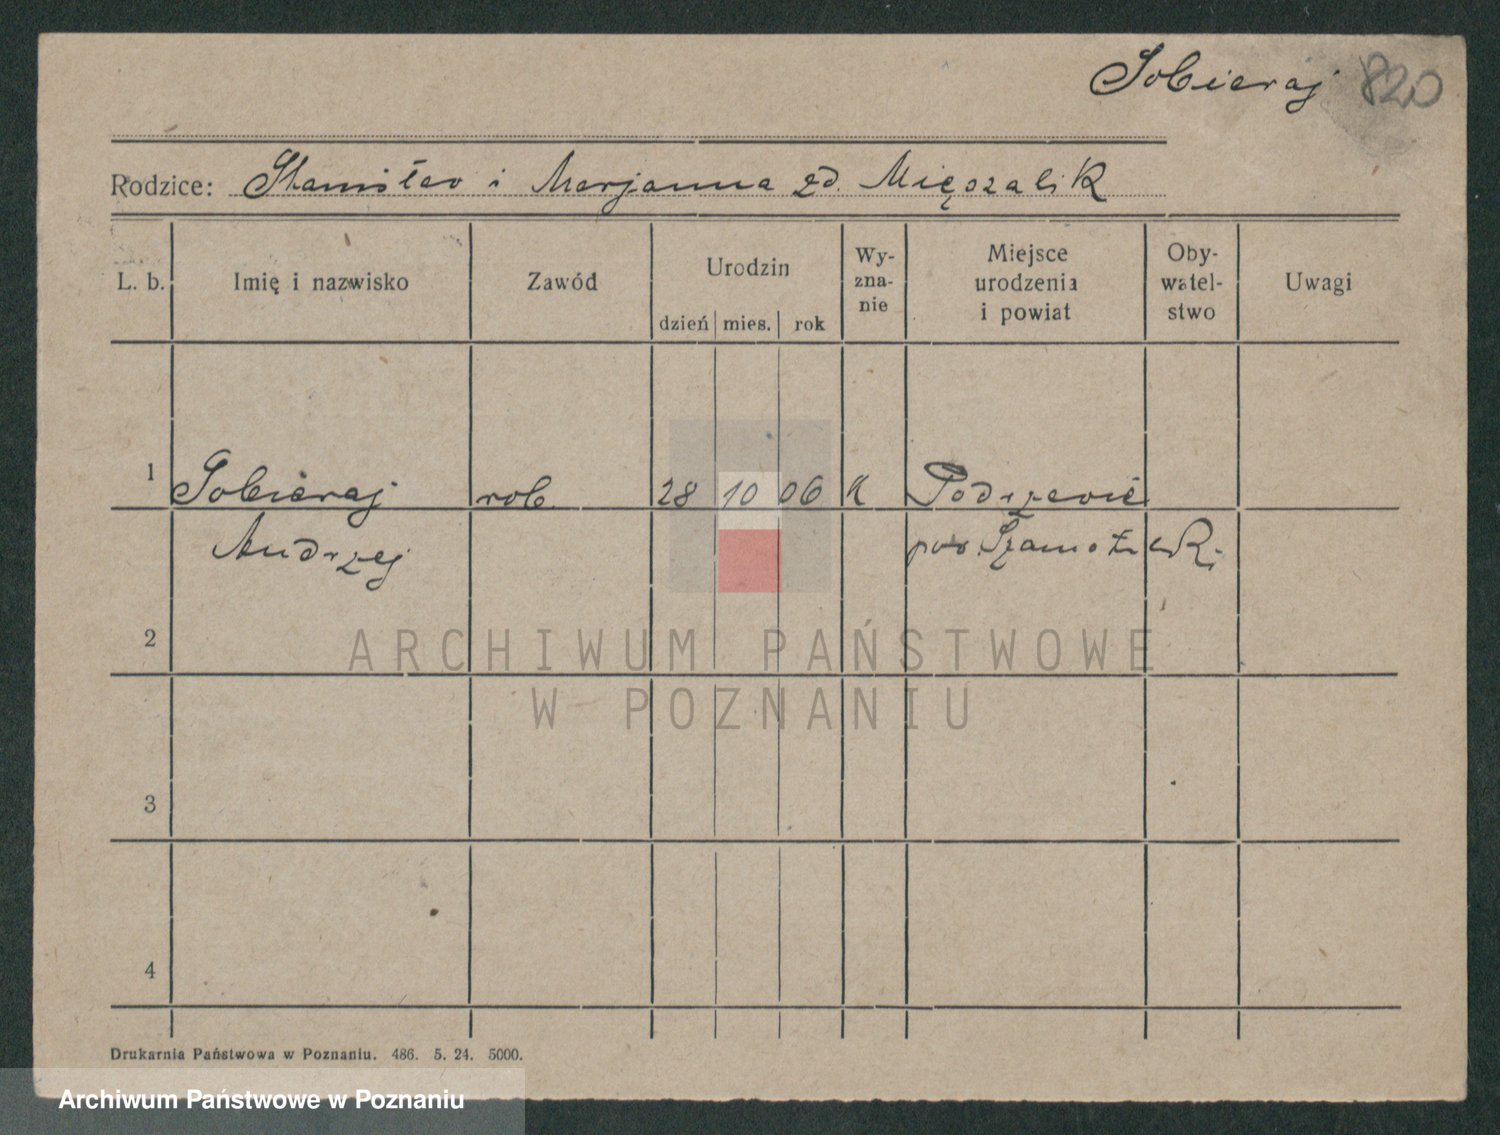 Sobieraj 820
Rodzice: Stanisław i Marjanna zd. Mięszalik
L. b. Imię i nazwisko Zawód Urodzin Wy-zna-nie Miejsce urodzenia i powiat Oby-watel-stwo Uwagi
dzień mies. rok
1 Sobieraj rob. 28 10 06 K Podrzewie
Andrzej pow. Szamotuły
2
ARCHIWUM PAŃSTWOWE
W POZNANIU
3
4
Drukarnia Państwowa w Poznaniu. 486. 5. 24. 5000.
Archiwum Państwowe w Poznaniu